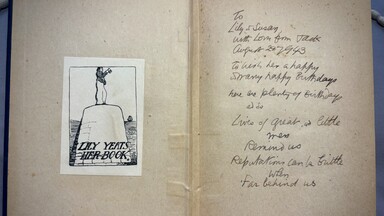 LILY YEATS
HER BOOK
To
Lily & Susan
with love from Jack
August 1943
To wish her a happy
& many happy Birthdays
here are plenty of Birthday
Lives of Great & little
men
Remind us
Reputations can be
when
Far behind us